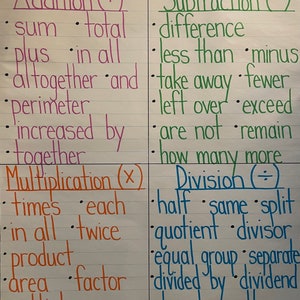 Addition (+)
• sum • total
• plus • in all
• altogether • and
• perimeter
• increased by
• together
Subtraction (-)
• difference
• less than • minus
• take away • fewer
• left over • exceed
• are not • remain
• how many more
Multiplication (x)
• times • each
• in all • twice
• product
• area • factor
Division (÷)
• half • same • split
• quotient • divisor
• equal group • separate
• divided by • dividend